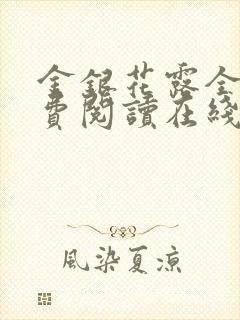 金銀花露全
費閱讀在綫
風染夏涼